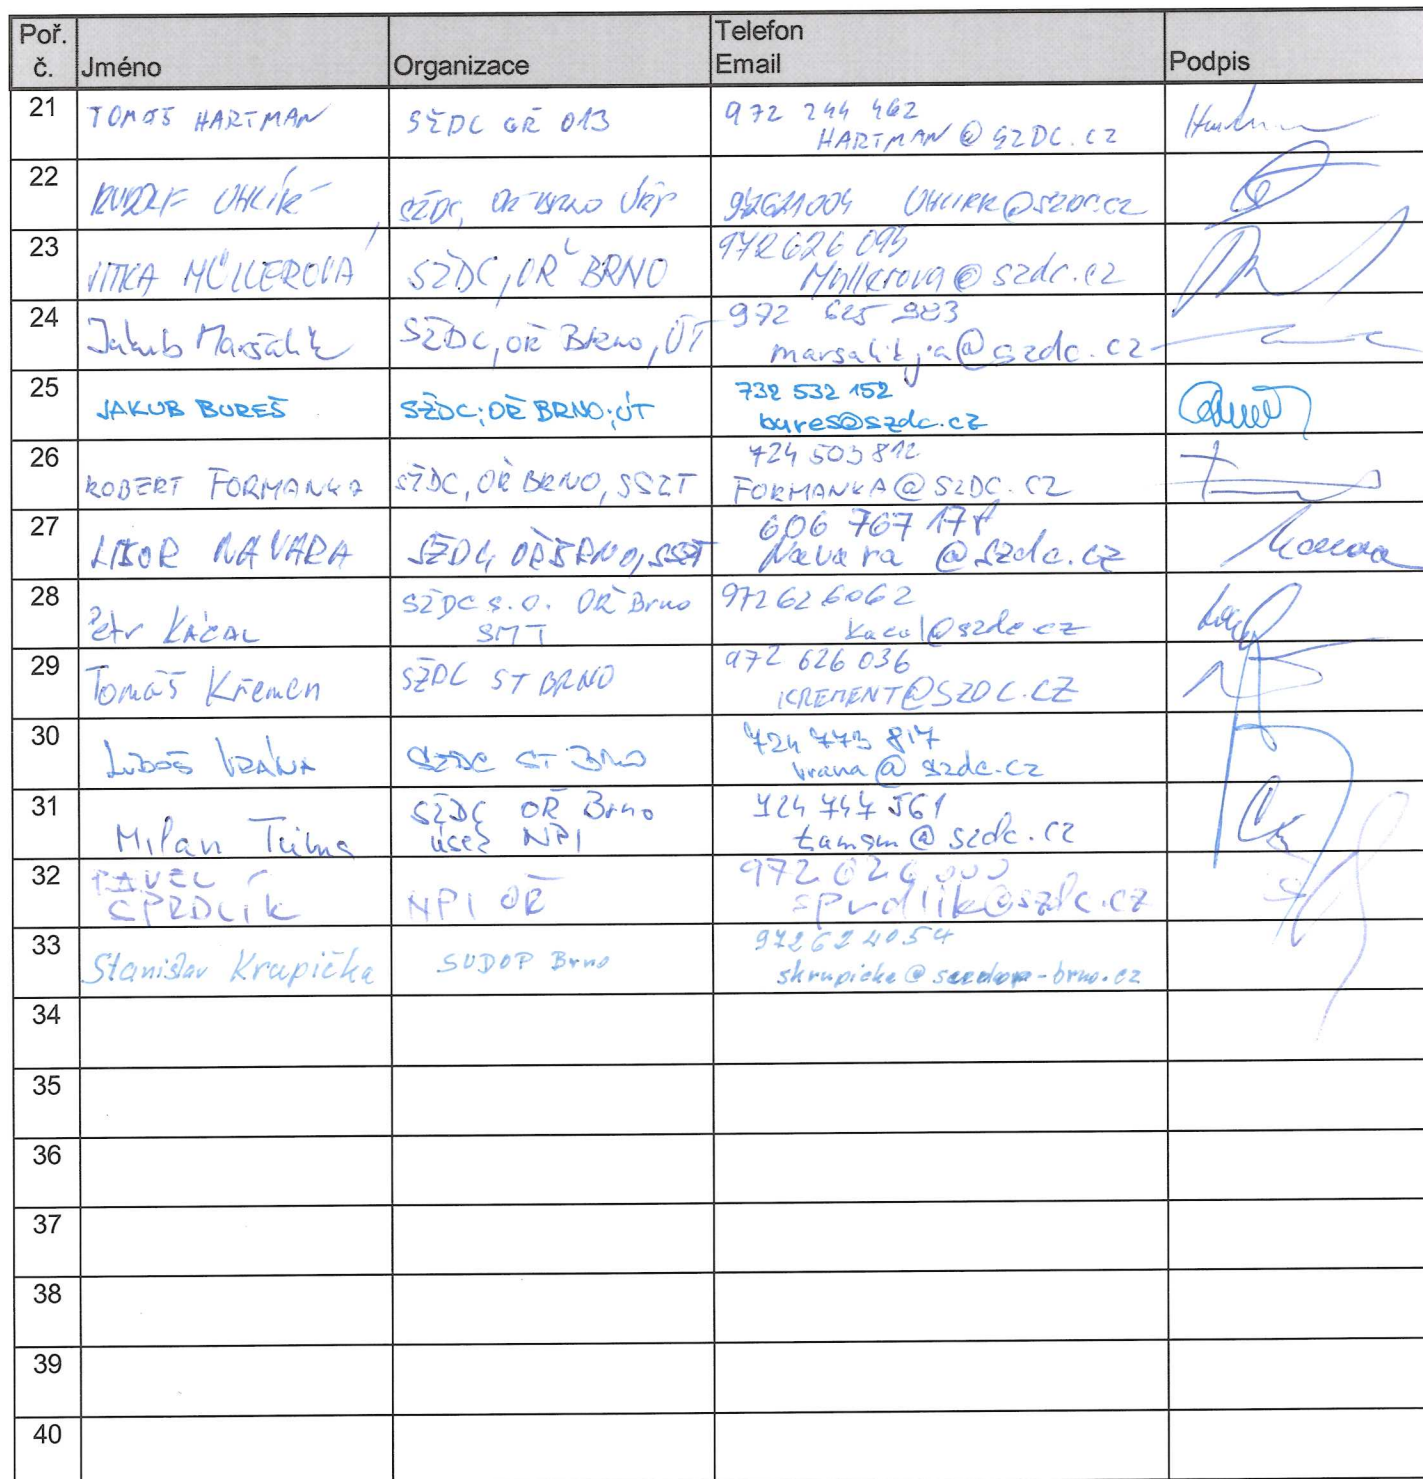 Poř. č. Jméno Organizace Telefon Email Podpis
21 TOMÁŠ HARTMAN SŽDC GŘ 013 972 244 462
HARTMAN@SZDC.CZ
22 UHLÍŘ SŽDC, OŘ BRNO
23 JITKA MÜLLEROVÁ SŽDC, OŘ BRNO 972 626 094
Mullerova@szdc.cz
24 Jakub Maršálik SŽDC, OŘ Brno, ÚT 972 625 983
marsalikja@szdc.cz
25 JAKUB BUREŠ SŽDC; OŘ BRNO; ÚT 732 532 152
bures@szdc.cz
26 ROBERT FORMANKA SŽDC, OŘ BRNO, SSZT 724 503 812
FORMANKA@SZDC.CZ
27 LIBOR NAVARA SŽDC, OŘ BRNO, SSZT 606 767 178
Navara@szdc.cz
28 Petr KAČAL SŽDC s.o. OŘ Brno
SMT 972 626 062
kacal@szdc.cz
29 Tomáš Křemen SŽDC ST BRNO 972 626 036
KREMENT@SZDC.CZ
30 Luboš VRÁNA SŽDC ST Brno 724 773 817
vrana@szdc.cz
31 Milan Tůma SŽDC OŘ Brno
úsek NPI 724 747 561
@szdc.cz
32 PAVEL
NPI OŘ 972
spurdlik@szdc.cz
33 Stanislav Krupička SUDOP Brno 972624054
skrupicka@sudop-brno.cz
34
35
36
37
38
39
40